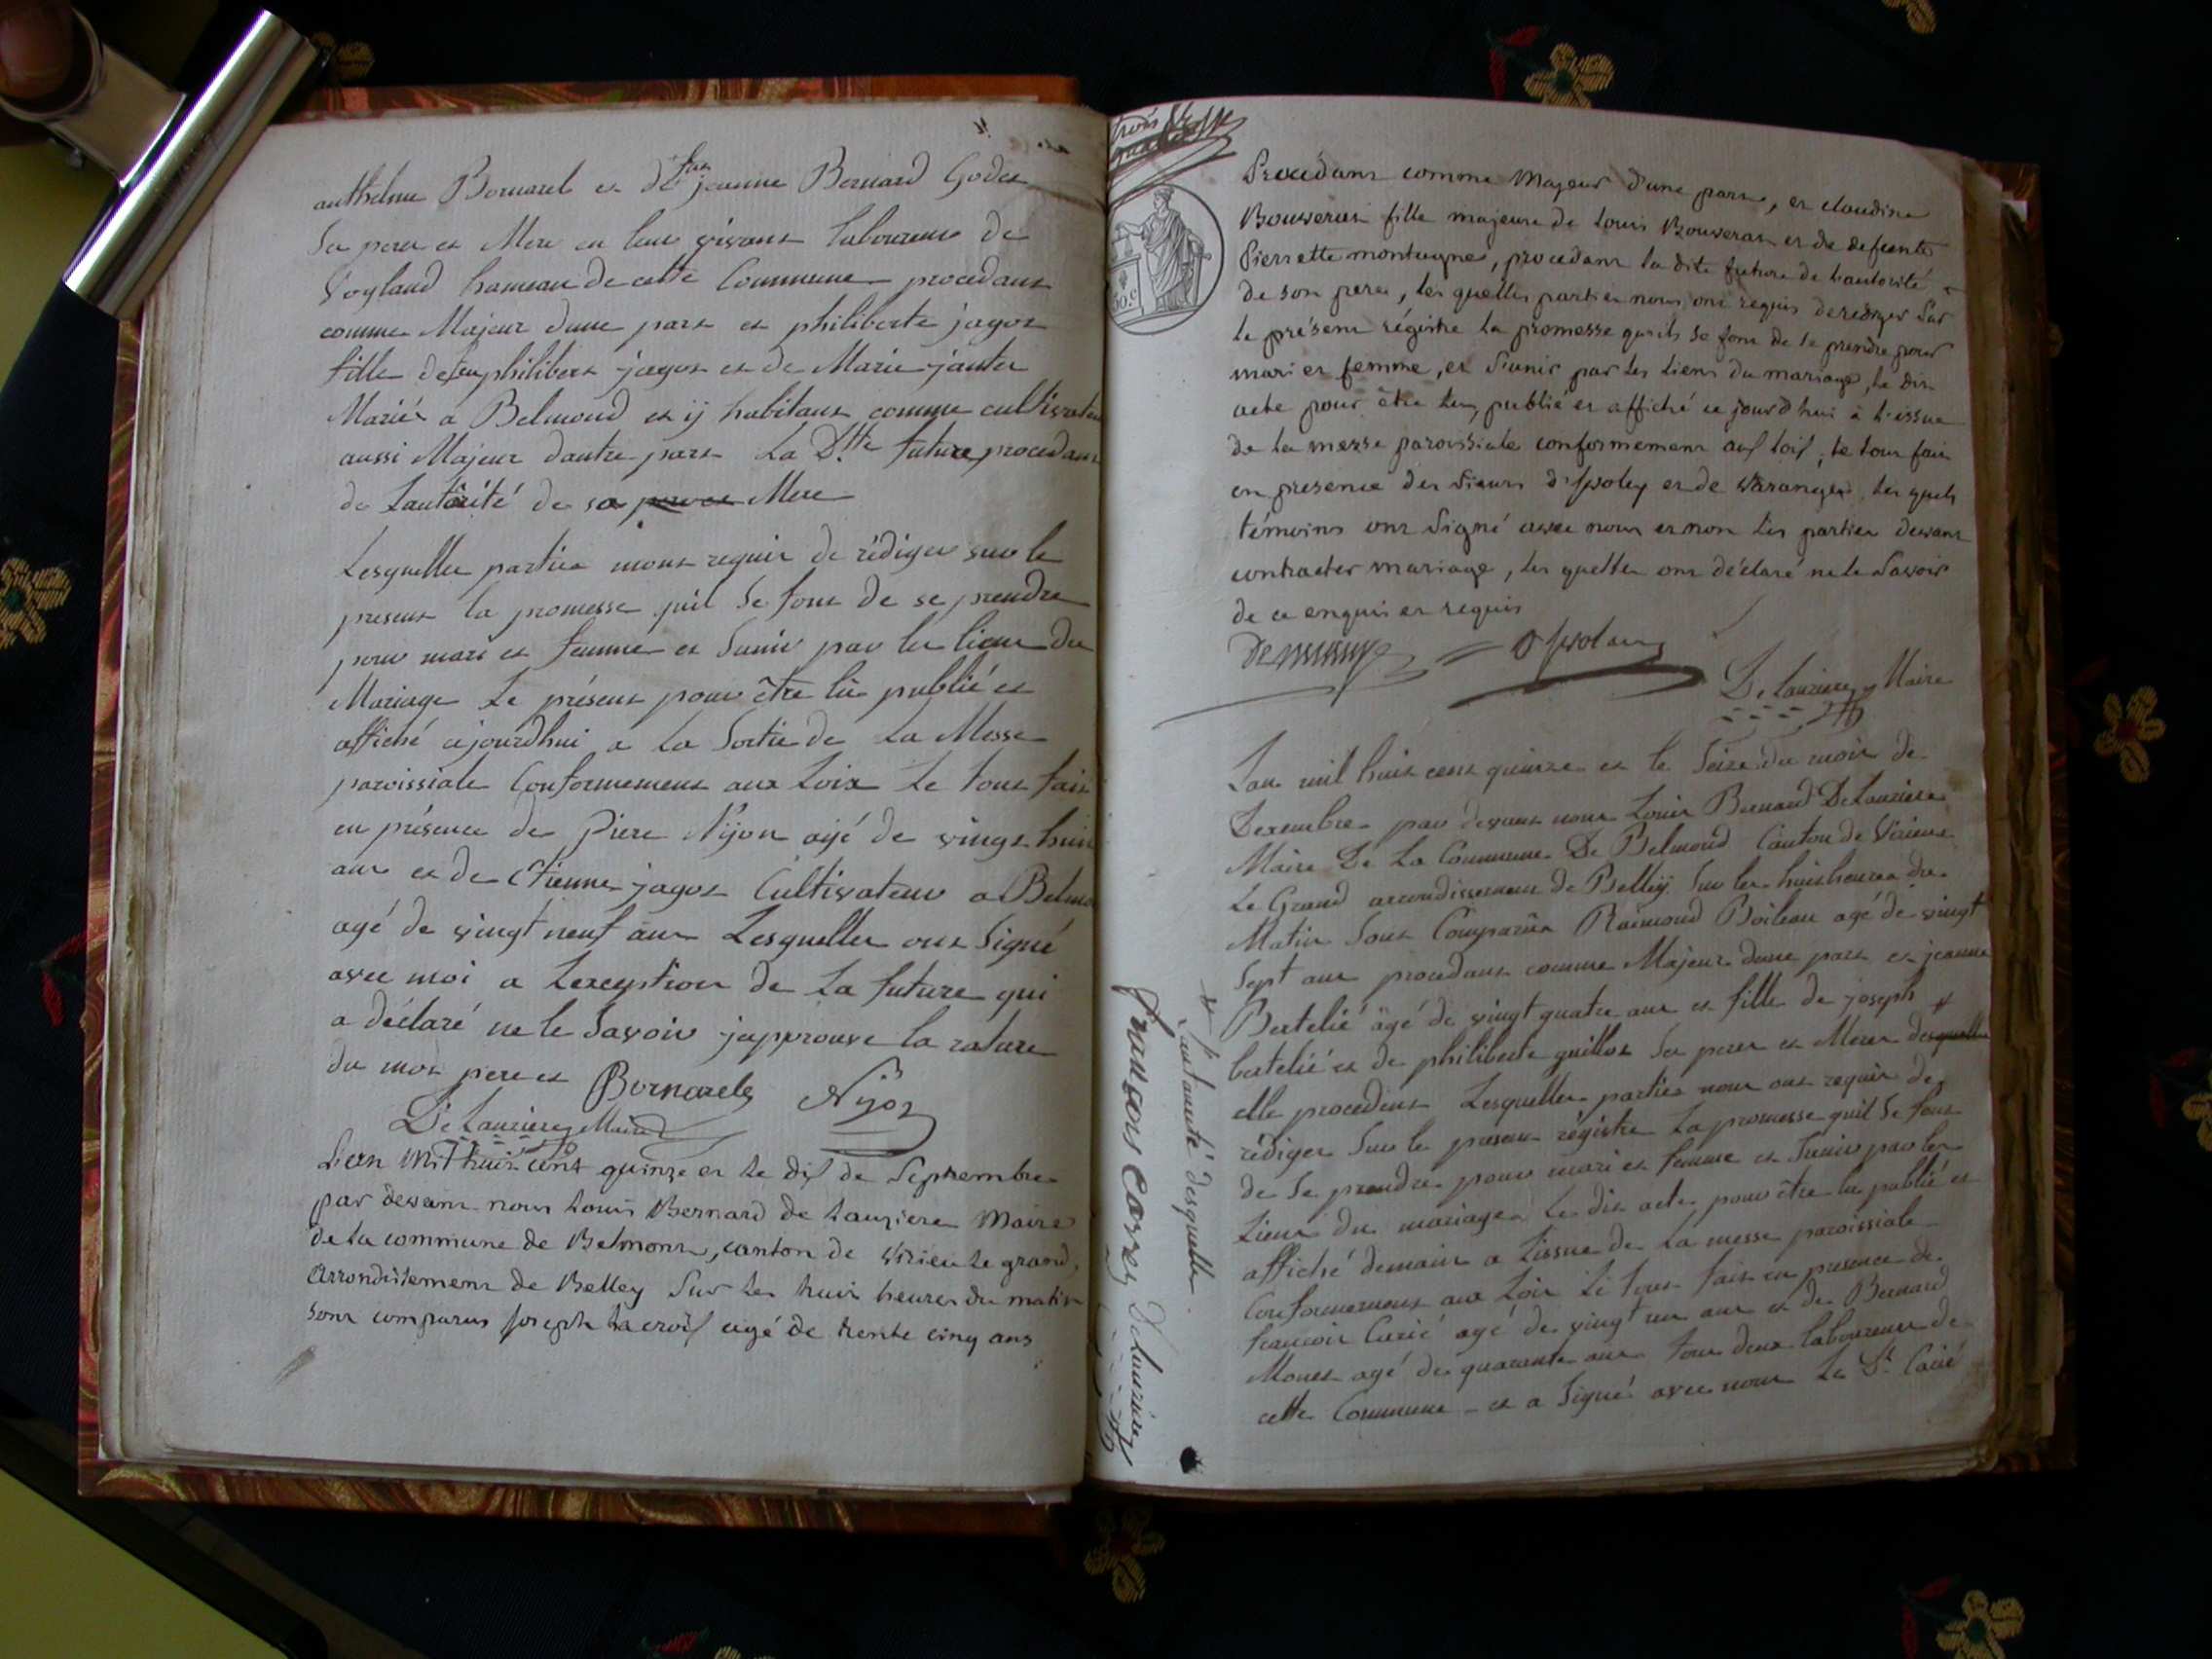 anthelme Bornarel et de feue jeanne Bernard Godet
Ses pere et Mere en leur vivant laboureurs de
Vogland hameau de cette Commune procedant
comme Majeur dune part et philiberte jagot
fille de feu philibert jagot et de Marie jantet
Mariés a Belmond et ij habitant comme cultivateur
aussi Majeur dautre part La Dtte future procedant
de Lautorité de sa Mere
Lesquelles parties mont requir de rédiger sur le
present la promesse quil Se font de se prendre
pour mari et femme et Sunir par les liens du
Mariage Le présent pour être lû publié et
affiché ajourdhui a La Sortie de La Messe
paroissiale Conformement aux Loix Le tout fait
en présence de Piere Nijon agé de vingt huit
ans et de Etienne jagot Cultivateur a Belmo
agé de vingt neuf ans Lesquelles ont Signé
avec moi a Lexeption de La future qui
a déclaré ne le Savoir japprouve la rature
du mot pere et Bornarel Nijon
De Lauziere Maire
L'an Mil huit cent quinze et le dix de Septembre
par devant nous Louis Bernard de Lauziere Maire
de la commune de Belmont, canton de Virieu le grand,
arrondissement de Belley Sur les huit heures du matin
sont comparus joseph Lacroix agé de trente cinq ans
Procédant comme Majeur d'une part, et claudine
Bouveras fille majeure de Louis Bouveras et de defunte
Pierrette montagne, procedant la dite future de l'autorité
de son pere, les quelles parties nous ont requis de rediger Sur
le présent régistre la promesse qu'ils se font de se prendre pour
mari et femme, et S'unir par les liens du mariage, le dit
acte pour être lu, publié et affiché ce jourd'hui à l'issue
de la messe paroissiale conformement aux loix, le tout fait
en presence des Sieurs d'Ipoley et de Varanges, les quels
témoins ont Signé avec nous et non les parties devant
contracter mariage, les quelles ont déclaré ne le Savoir
de ce enquis et requis
De Lauziere Maire
Lan mil huit cent quinze et le Seize du mois de
Decembre par devant nous Louis Bernard De Lauziere
Maire De La Commune De Belmond Canton de Virieux
Le Grand arrondissement de Belleij Sur les huit heures du
Matin Sont Comparûs Raimond Boileau agé de vingt
Sept ans procedant comme Majeur dune part et jeanne
Bertelié âgé de vingt quatre ans et fille de joseph
bertelié et de philiberte guillot Ses peres et Meres desquelles
elle procedent Lesquelles parties nous ont requir de
rédiger Sur le present régistre La promesse quil Se font
de Se prendre pour mari et femme et Sunir par les
Liens du mariage Le dit acte pour être lu publié et
affiché demain a Lissue de La messe paroissiale
Conformement aux Loix Le tout fait en presence de
francois Carié agé de vingt un ans et de Bernard
Monet agé de quarante ans tous deux laboureurs de
cette Commune et a Signé avec nous Le Sr Carié
Lautorité desquelles
francois carrey De Lauziere